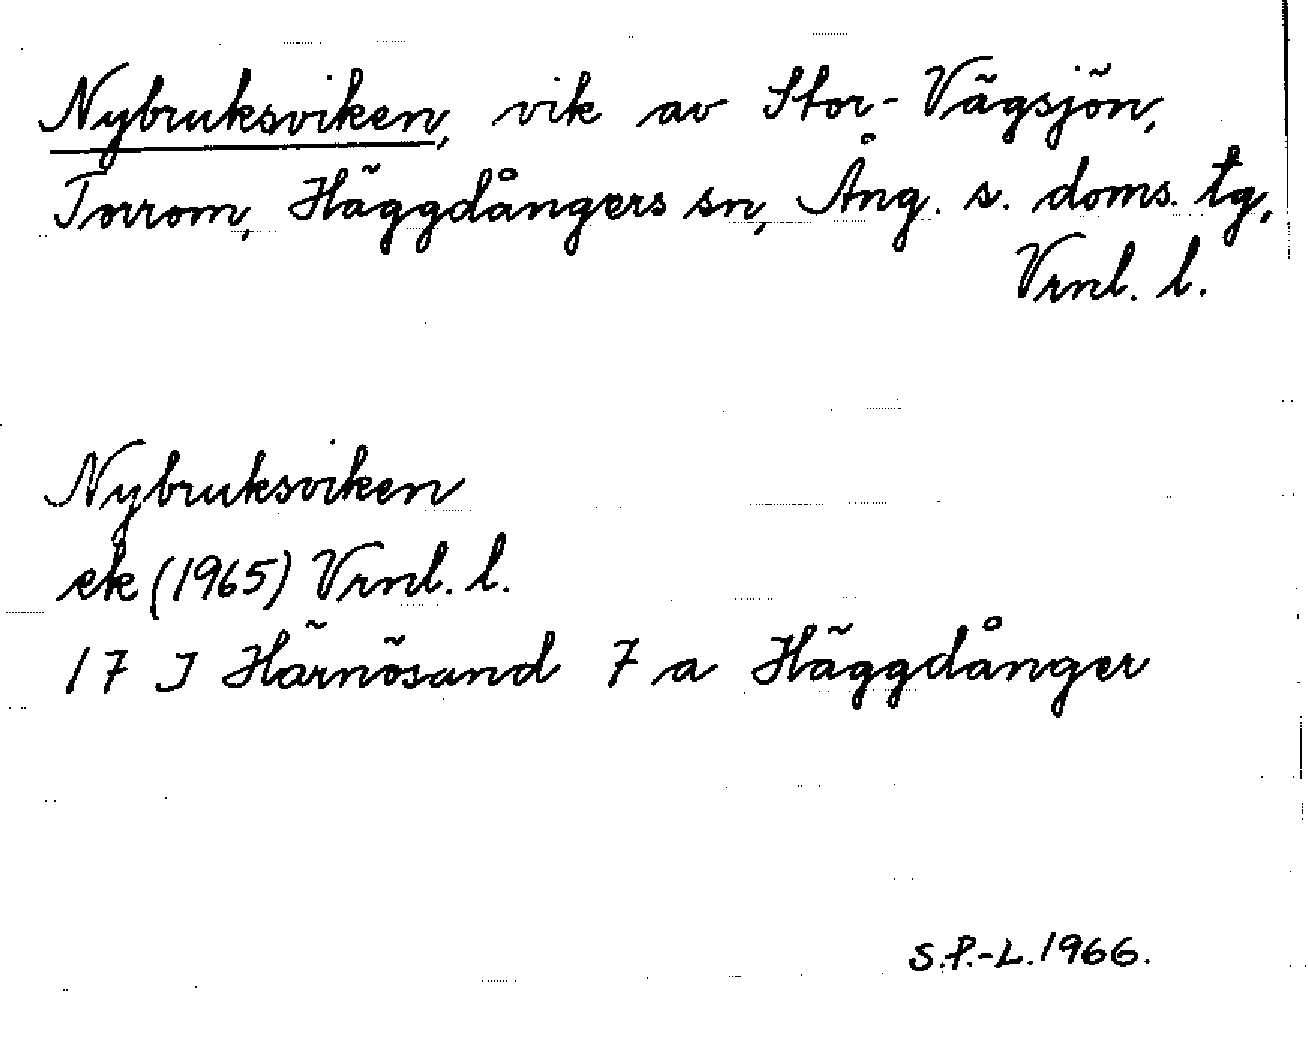 Nybruksviken, vik av Stor-Vägsjön,
Torrom, Häggdångers sn, Ång. s. doms. tg,
Vrnl. l.
Nybruksviken
ek (1965) Vrnl. l.
17 J Härnösand 7 a Häggdånger
S.P.-L. 1966.